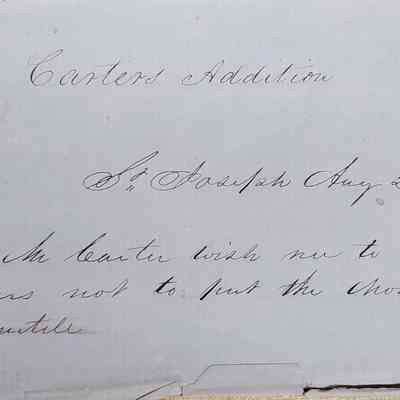 Carters Addition
St Joseph Aug 2
Mr Carter wish me to
ers not to put the
until